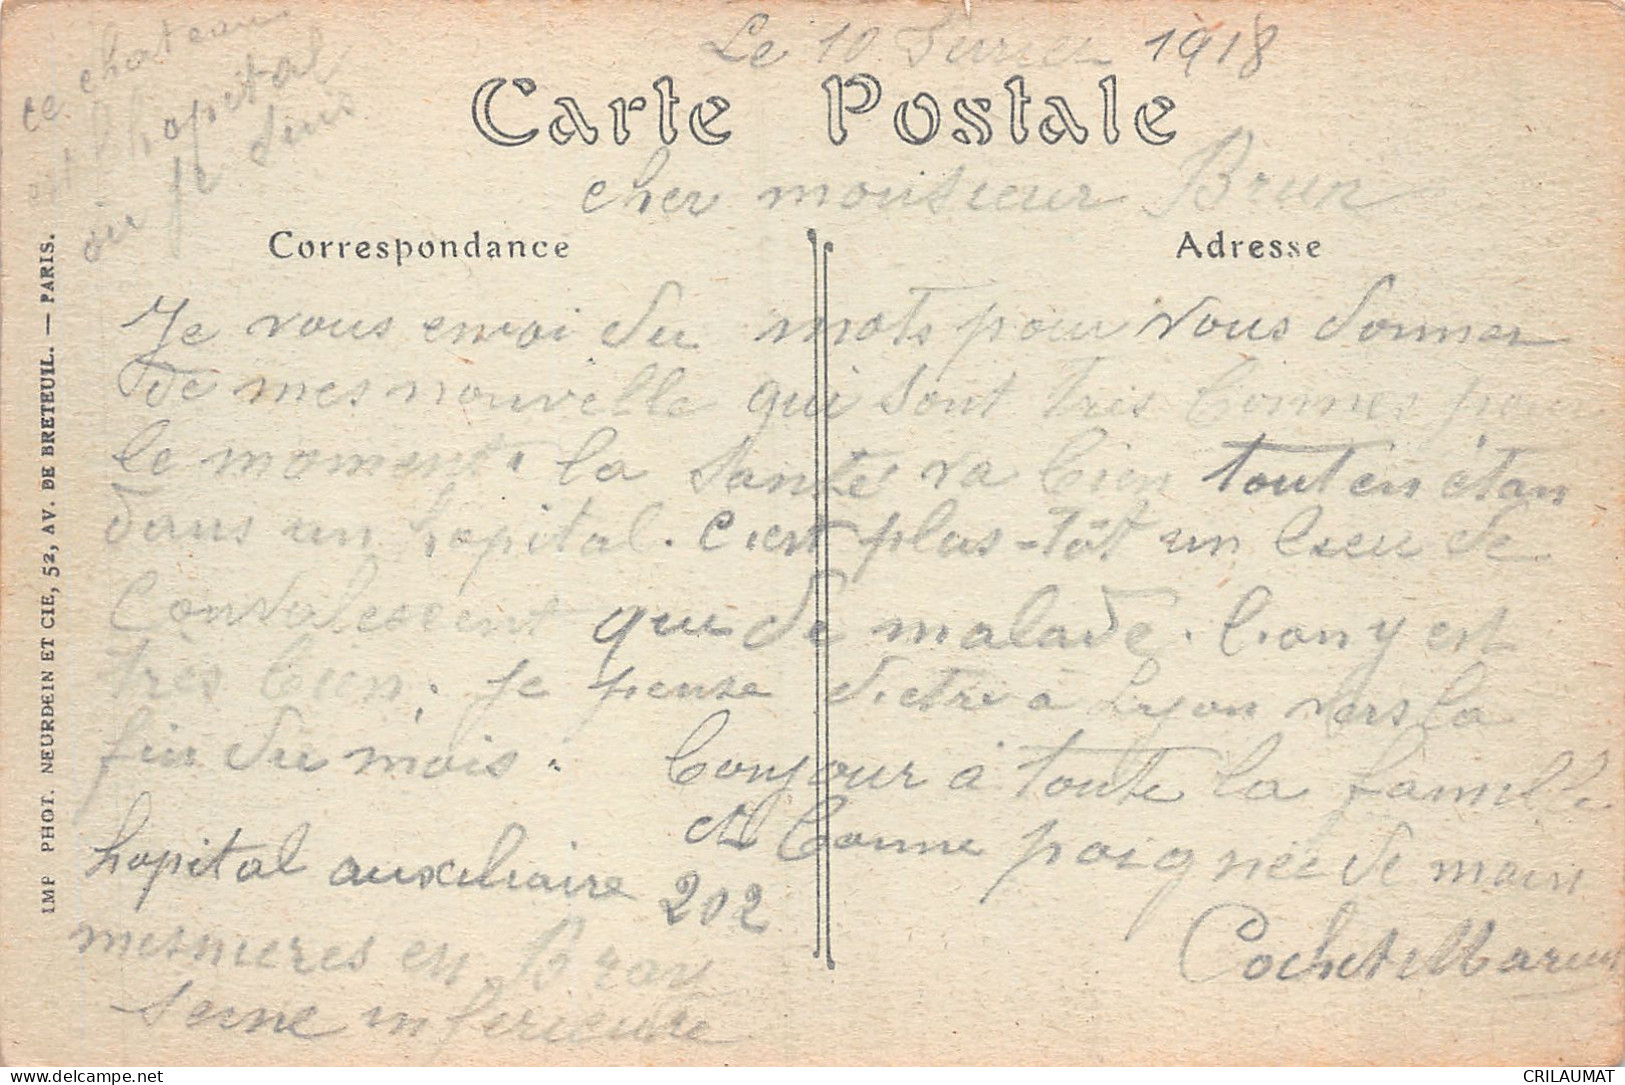 ce chateau
est l'hopital
où je suis
Le 10 Fevrier 1918
Carte Postale
cher monsieur Brun
Correspondance
Adresse
Je vous envoi du mots pour vous donner
de mes nouvelle qui sont très bonnes pour
le moment. la santé va bien tout en étan
dans un hopital. c'est plus-tôt un lieu de
convalescent que de malade. l'on y est
très bien. je pense d'etre à Lyon vers la
fin du mois. bonjour à toute la famille
et bonne poignée de main
hopital auxiliaire 202
mesnieres en Bray
seine inferieure
Cochet Marius
IMP PHOT. NEURDEIN ET CIE, 52, AV. DE BRETEUIL. — PARIS.
delcampe.net
CRILAUMAT